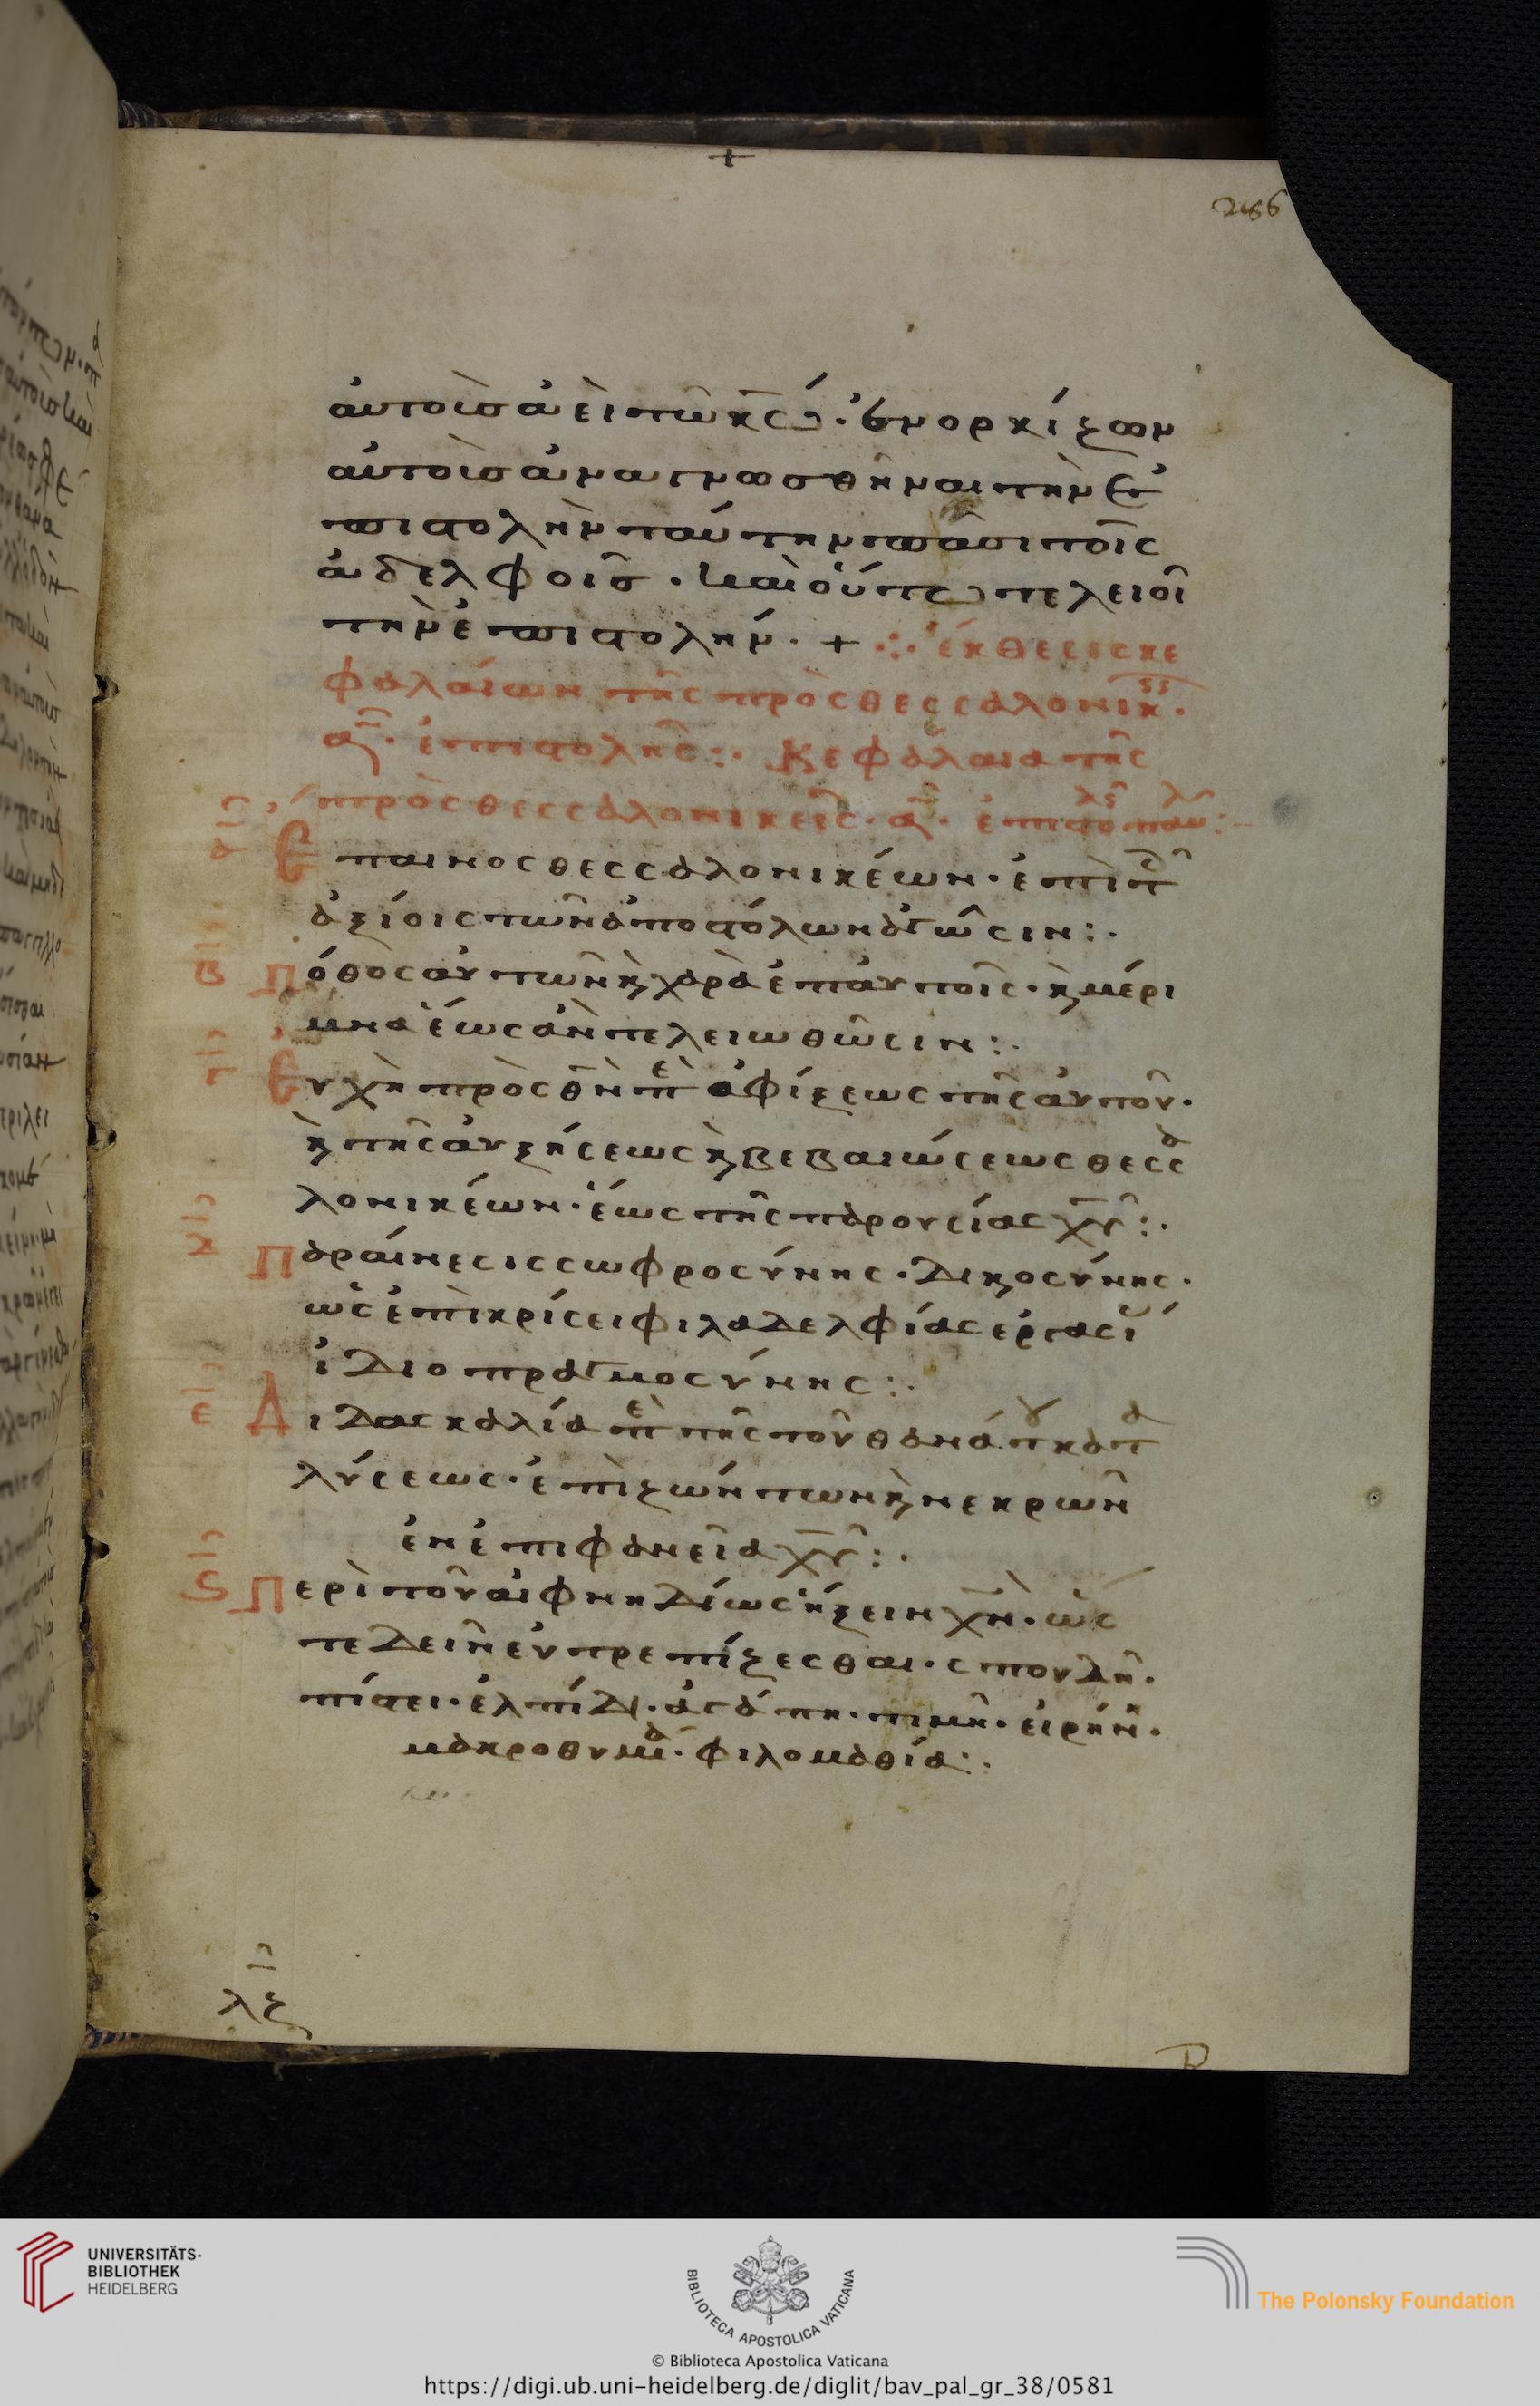 +
286
αὐτοὶσ ἃ εἶπεν κς
αὐτοὶσ ἀναγνωσθῆναι τὴν ἐ
πιστολὴν ταύτην πᾶσι τοῖς
ἀδελφοῖσ · καὶ οὕτω τελειοῖ
τὴν ἐπιστολήν · + ·:· ἔκθεσις κε
φαλαίων τῆς πρὸς θεσσαλονικ ·
α · ἐπιστολῆς :· Κεφάλαια τῆς
πρὸς θεσσαλονικεῖς · α ·
α Ἔπαινος θεσσαλονικέων · ἐπὶ τ
ἀξίοις τῶν ἀποστόλων ἀγῶσιν :·
β Πόθος αὐτῶν κ χαρὰ ἐπ αὐτοῖς · κ μέρι
μνα ἕως ἂν τελειωθῶσιν :·
γ Εὐχὴ πρὸς θν πε ἀφίξεως τῆς αὐτοῦ ·
κ τῆς αὐξήσεως κ βεβαιώσεως θεσσα
λονικέων · ἕως τῆς παρουσίας χυ :·
δ Παραίνεσις σωφροσύνης · δικοσύνης ·
ὡς ἐπὶ κρίσει φιλαδελφίας
ἰδιοπραγμοσύνης :·
ε Διδασκαλία πε τῆς τοῦ θανάτου κατα
λύσεως · ἐπὶ ζώντων κ νεκρῶν
ἐν ἐπιφανεία χυ :·
ϛ Περὶ τοῦ αἰφνηδίως ἥξειν χν · ὡς
τε δεῖν εὐτρεπίζεσθαι · σπουδῆ ·
πίστει · ἐλπίδι · ἀγάπη · τιμῆ · εἰρήνη ·
μακροθυμία · φιλομαθία :·
λζ
UNIVERSITÄTS-
BIBLIOTHEK
HEIDELBERG
BIBLIOTECA APOSTOLICA VATICANA
The Polonsky Foundation
© Biblioteca Apostolica Vaticana
https://digi.ub.uni-heidelberg.de/diglit/bav_pal_gr_38/0581